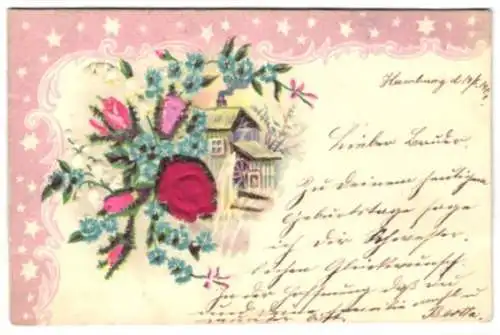 Hamburg d. 14/
Lieber Bruder.
Zu deinem heutigen
Geburtstage sage
ich dir Schwester-
lichen Glückwunsch.
In der Hoffnung daß du
und
Bertha